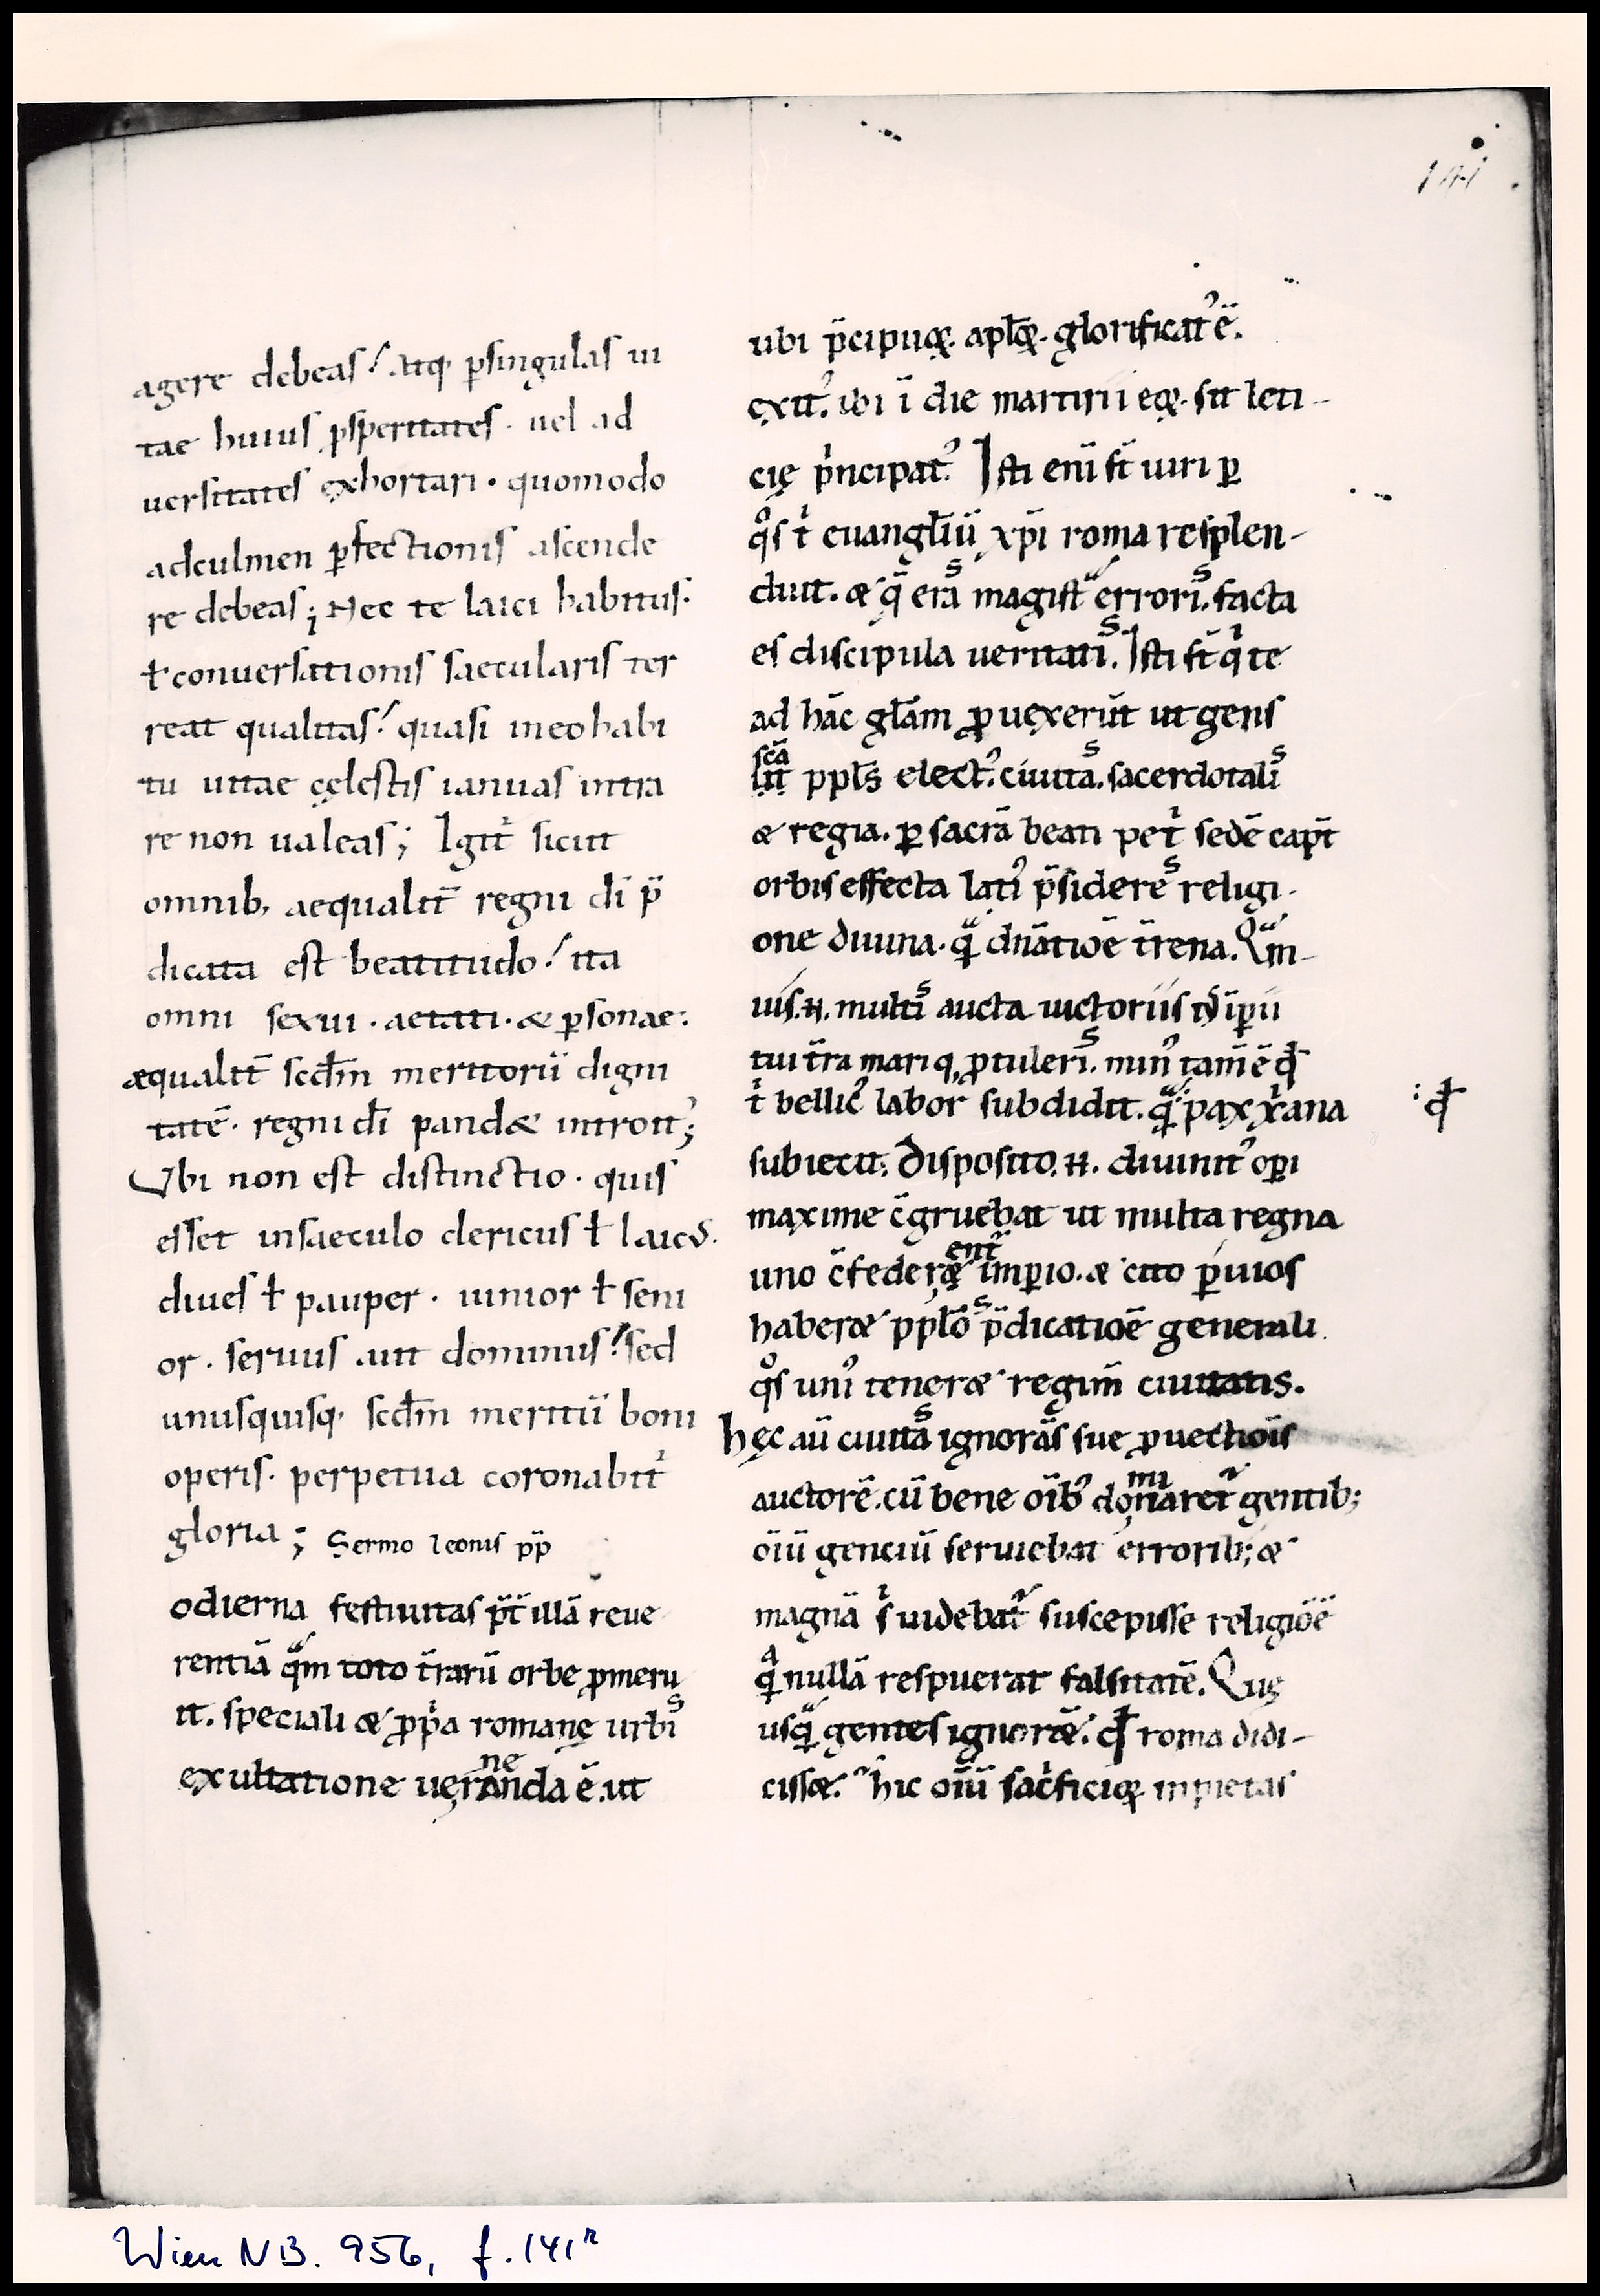 141
agere debeas? atq; p̱singulas ui
tae huius ꝓsperitates · uel ad
uersitates exhortari · quomodo
adculmen ꝑfectionis ascende
re debeas; Nec te laici habitus·
ł conuersationis saecularis ter
reat qualitas? quasi ineo habi
tu uitae cęlestis ianuas intra
re non ualeas; Igit᷑ sicut
omnib; aequalit̄ regni dī p̄
dicata est beatitudo? ita
omni sexui · aetati · & ꝑsonae:
æqualit̄ scdm̄ meritorū digni
tatē · regni dī pand& introit᷒;
Ubi non est distinctio · quis
esset insaeculo clericus ł laicus.
diues ł pauper · iunior ł seni
or · seruus aut dominus? sed
unusquisq; scdm̄ meritū boni
operis · perpetua coronabit᷑
gloria; Sermo leonis pp̄
odierna festiuitas p̄t̄ illā reue
rentiā qͣm toto t̄rarū orbe ꝓmeru
it. speciali & ꝓpͥa romanę urbiˢ
exultatione ueneranda ē. ut
ubi p̄cipuoꝝ · aplōꝝ · glorificat᷒ ē.
exit᷒. ibi ī die martirii eoꝝ · sit leti-
cię pͥncipat᷒. Isti enī st̄ uiri ꝑ
qͦs tͥ euangliū xp̄i roma resplen-
duit. & q̄ eraˢ magistͣ erroriˢ. facta
es discipula ueritatiˢ. Isti st̄ qͥ te
ad hāc glām ꝓuexerūt ut gens
scā
sit pplˢ elect᷒. ciuitaˢ. sacerdotaliˢ
& regia. ꝑ sacrā beati petͥ sedē capͭ
orbis effecta lati᷒ p̄sidereˢ religi-
one diuina · qͣ dn̄atiōe t̄rena. Qͣm-
uis. n̄. multiˢ aucta uictoriis ius īꝑii
tui t̄ra mariq; ꝓtuleriˢ. min᷒ tam̄ ē qd̄
tͥ bellic᷒ labor subdidit. qͣ pax xͥana :qd̄
subiecit; Disposito. n̄. diuinit᷒ oꝑi
maxime c̄gruebat ut multa regna
ent᷑
uno c̄feder& imꝑio. & cito ꝑuios
haber& pploˢ p̄dicatiōe generali
qͦs uni᷒ tener& regim̄ ciuitatis.
hęc aū ciuitaˢ ignorāˢ sue ꝓuectiōis
auctorē. cū bene oīb᷒ dominaret᷑ gentib;
oīū genciū seruiebat errorib; &
magnā sͥ uidebat᷑ suscepisse religiōē
qͣ nullā respuerat falsitatē. Quę
usqͣ gentes ignorā&. qd̄ roma didi-
ciss&. hic oīū sacͥficioꝝ inpietas
Wien NB. 956, f. 141ʳ